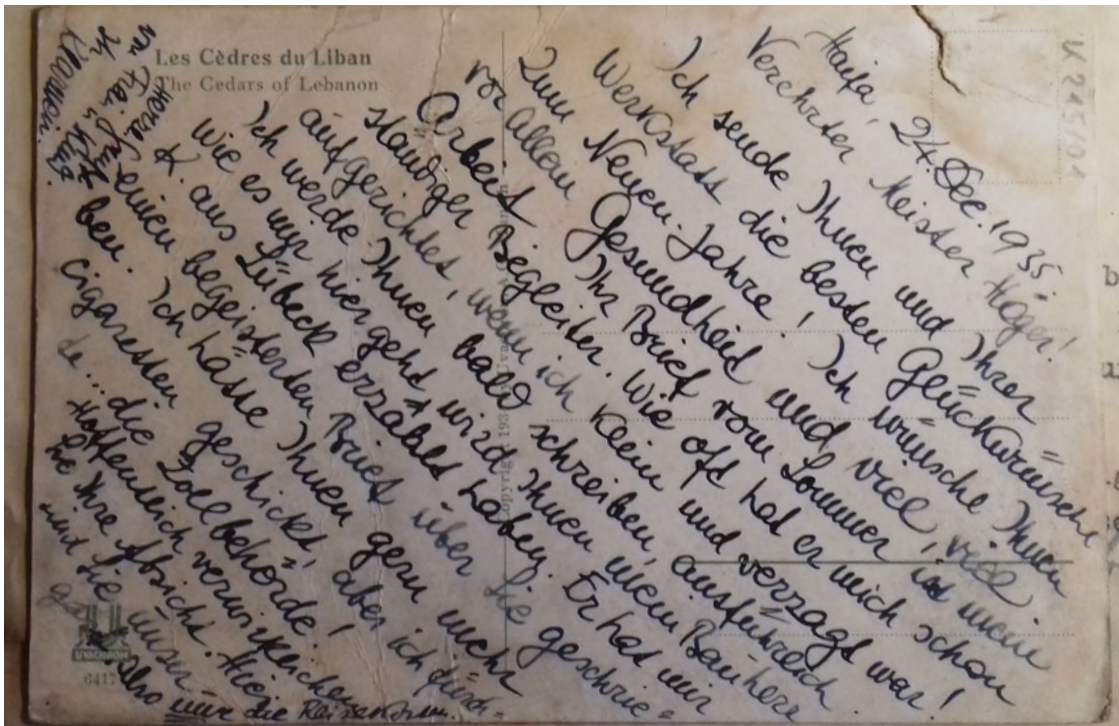 Les Cèdres du Liban
The Cedars of Lebanon
K 245/02
Haifa, 24. Dec. 1935.
Verehrter Meister Höger!
Ich sende Ihnen und Ihrer
Werkstatt die besten Glückwünsche
zum Neuen Jahre! Ich wünsche Ihnen
vor allem Gesundheit und viel, viel
Arbeit. Ihr Brief vom Sommer ist mein
ständiger Begleiter. Wie oft hat er mich schon
aufgerichtet, wenn ich klein und verzagt war!
Ich werde Ihnen bald schreiben, ausführlich
wie es mir hier geht wird Ihnen mein Bauherr
K. aus Lübeck erzählt haben. Er hat mir
einen begeisterten Brief über Sie geschrie=
ben. Ich hätte Ihnen gern mehr
Cigaretten geschickt, aber ich fürch-
te... die Zollbehörde!
Hoffentlich verwirklichen
Sie Ihre Absicht. Hier
sind Sie unser
also nur die Reise
Copyright 193
6417